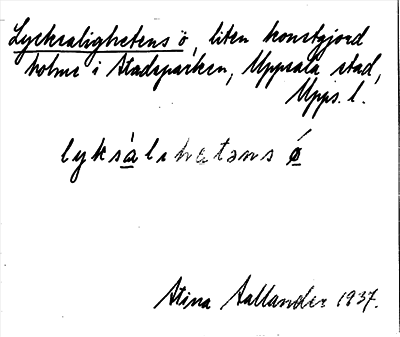 Lycksalighetens ö, liten konstgjord
holme i Stadsparken, Uppsala stad,
Upps. l.
lyksàlıhetəns ǿ
Stina Hallander 1937.